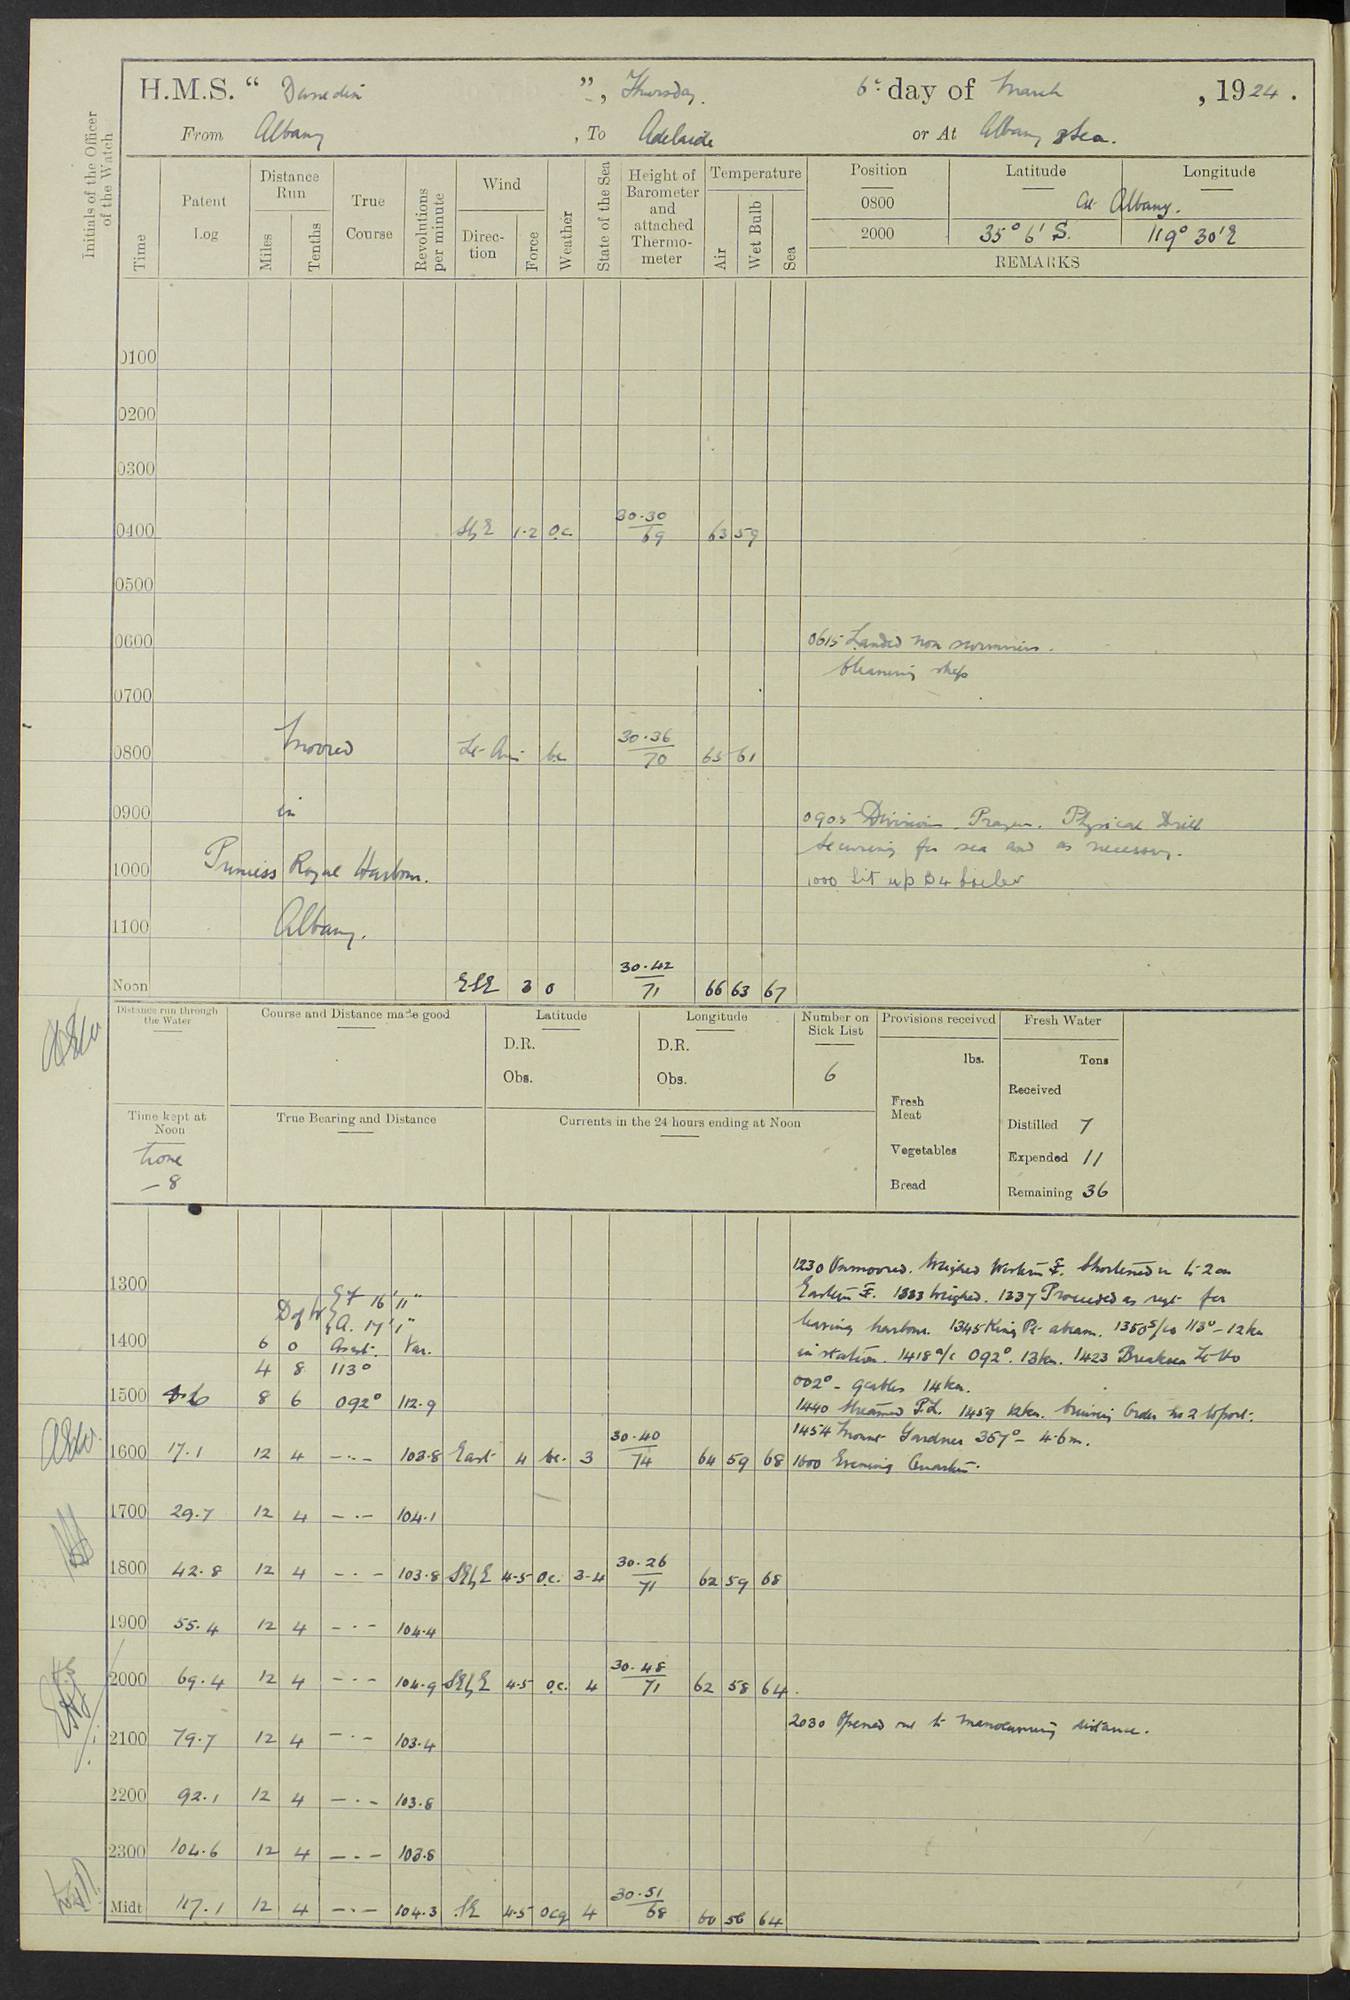 H.M.S. “ Dunedin ”, Thursday. 6th day of March, 1924.
From Albany, To Adelaide or At Albany & Sea.
Initials of the Officer of the Watch
Time
Patent Log
Distance Run
Miles
Tenths
True Course
Revolutions per minute
Wind
Direction
Force
Weather
State of the Sea
Height of Barometer and attached Thermometer
Temperature
Air
Wet Bulb
Sea
Position Latitude Longitude
0800 At Albany.
2000 35° 6' S. 119° 30' E
REMARKS
0100
0200
0300
0400 SbyE 1-2 o.c. 30.30 69 63 59
0500
0600 0615 Landed non swimmers.
Cleaning ship
0700
0800 Moored Lt. Airs bc 30.36 70 65 61
0900 in 0905 Divisions. Prayers. Physical Drill
Securing for sea and as necessary.
1000 Princess Royal Harbour. 1000 Lit up B4 boiler
1100 Albany.
Noon ESE 3 o 30.42 71 66 63 67
Distance run through the Water
Course and Distance made good
Latitude
D.R.
Obs.
Longitude
D.R.
Obs.
Number on Sick List
6
Provisions received
lbs.
Fresh Meat
Vegetables
Bread
Fresh Water
Tons
Received
Distilled 7
Expended 11
Remaining 36
Time kept at Noon
Zone
- 8
True Bearing and Distance
Currents in the 24 hours ending at Noon
1230 Unmoored. Weighed Western. Shortened in to 2 on
1300 Eastern. 1333 Weighed. 1337 Proceeded as reqt for
D of W F 16' 11" A. 17' 1"
leaving harbour. 1345 King Pt. abeam. 1350 S/Co 113° - 12 kn
1400 6 0 Assist. Var.
in station. 1418 a/c 092°. 13 kn. 1423 Breaksea Lt Ho
4 8 113°
002° - 9 cables 14 kn.
1500 8 6 092° 112.9
1440 Streamed P.L. 1459 12 kn. Cruising Order No 2 to port.
1454 Mount Gardner 357° - 4.6 m.
1600 17.1 12 4 —·— 103.8 East 4 bc. 3 30.40 74 64 59 68 1600 Evening Quarters.
1700 29.7 12 4 —·— 104.1
1800 42.8 12 4 —·— 103.8 SEbyE 4-5 o.c. 3-4 30.26 71 62 59 68
1900 55.4 12 4 —·— 104.4
2000 69.4 12 4 —·— 104.9 SEbyE 4-5 o.c. 4 30.48 71 62 58 64
2030 Opened out to manoeuvring distance.
2100 79.7 12 4 —·— 103.4
2200 92.1 12 4 —·— 103.8
2300 104.6 12 4 —·— 103.8
Midt 117.1 12 4 —·— 104.3 SE 4-5 ocq 4 30.51 68 60 56 64